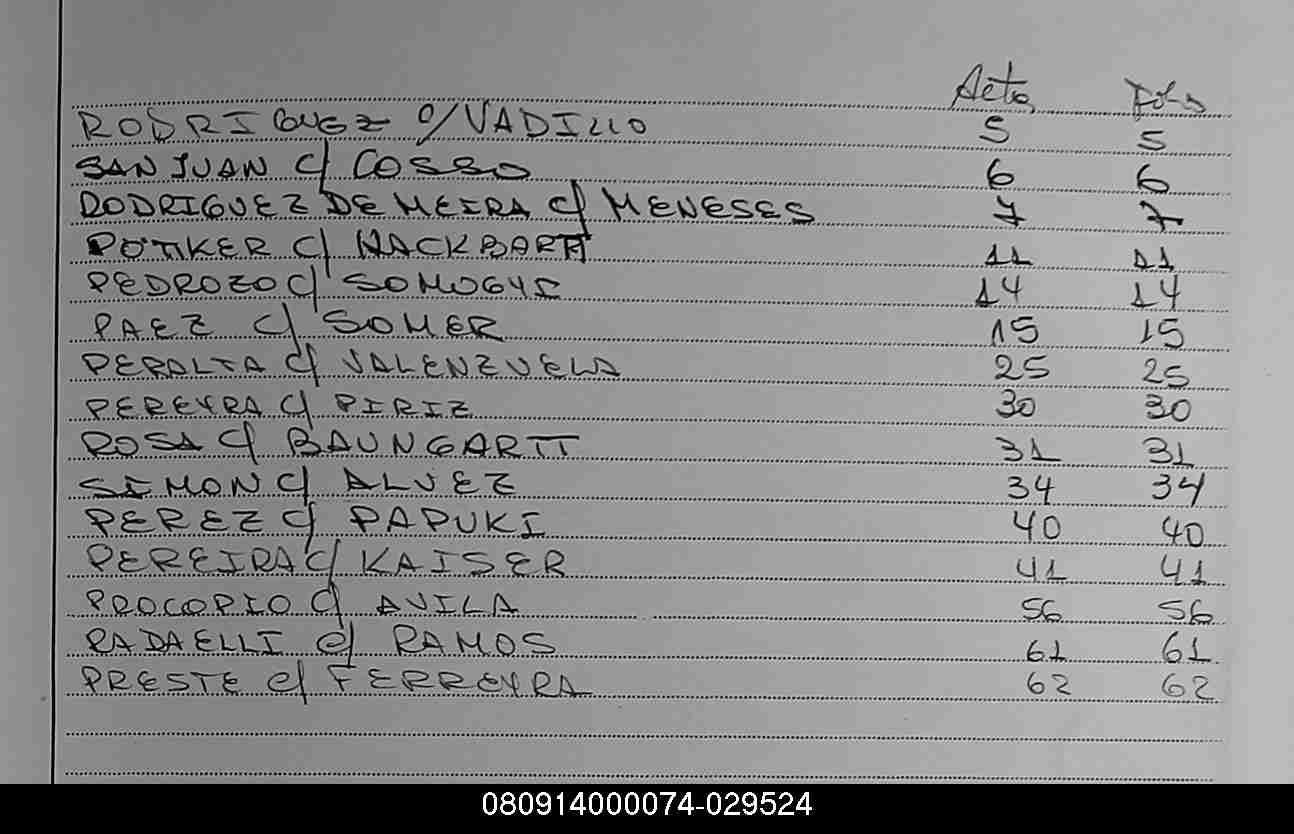 Acta Folio
RODRIGUEZ c/ VADILLO 5 5
SANJUAN c/ COSSO 6 6
RODRIGUEZ DE MEIRA c/ MENESES 7 7
POTTKER c/ HACKBART 11 11
PEDROZO c/ SOMOGYI 14 14
PAEZ c/ SOMER 15 15
PERALTA c/ VALENZUELA 25 25
PEREYRA c/ PIRIZ 30 30
ROSA c/ BAUNGARTT 31 31
SIMON c/ ALVEZ 34 34
PEREZ c/ PAPUKI 40 40
PEREIRA c/ KAISER 41 41
PROCOPIO c/ AVILA 56 56
RADAELLI c/ RAMOS 61 61
PRESTE c/ FERREYRA 62 62
080914000074-029524